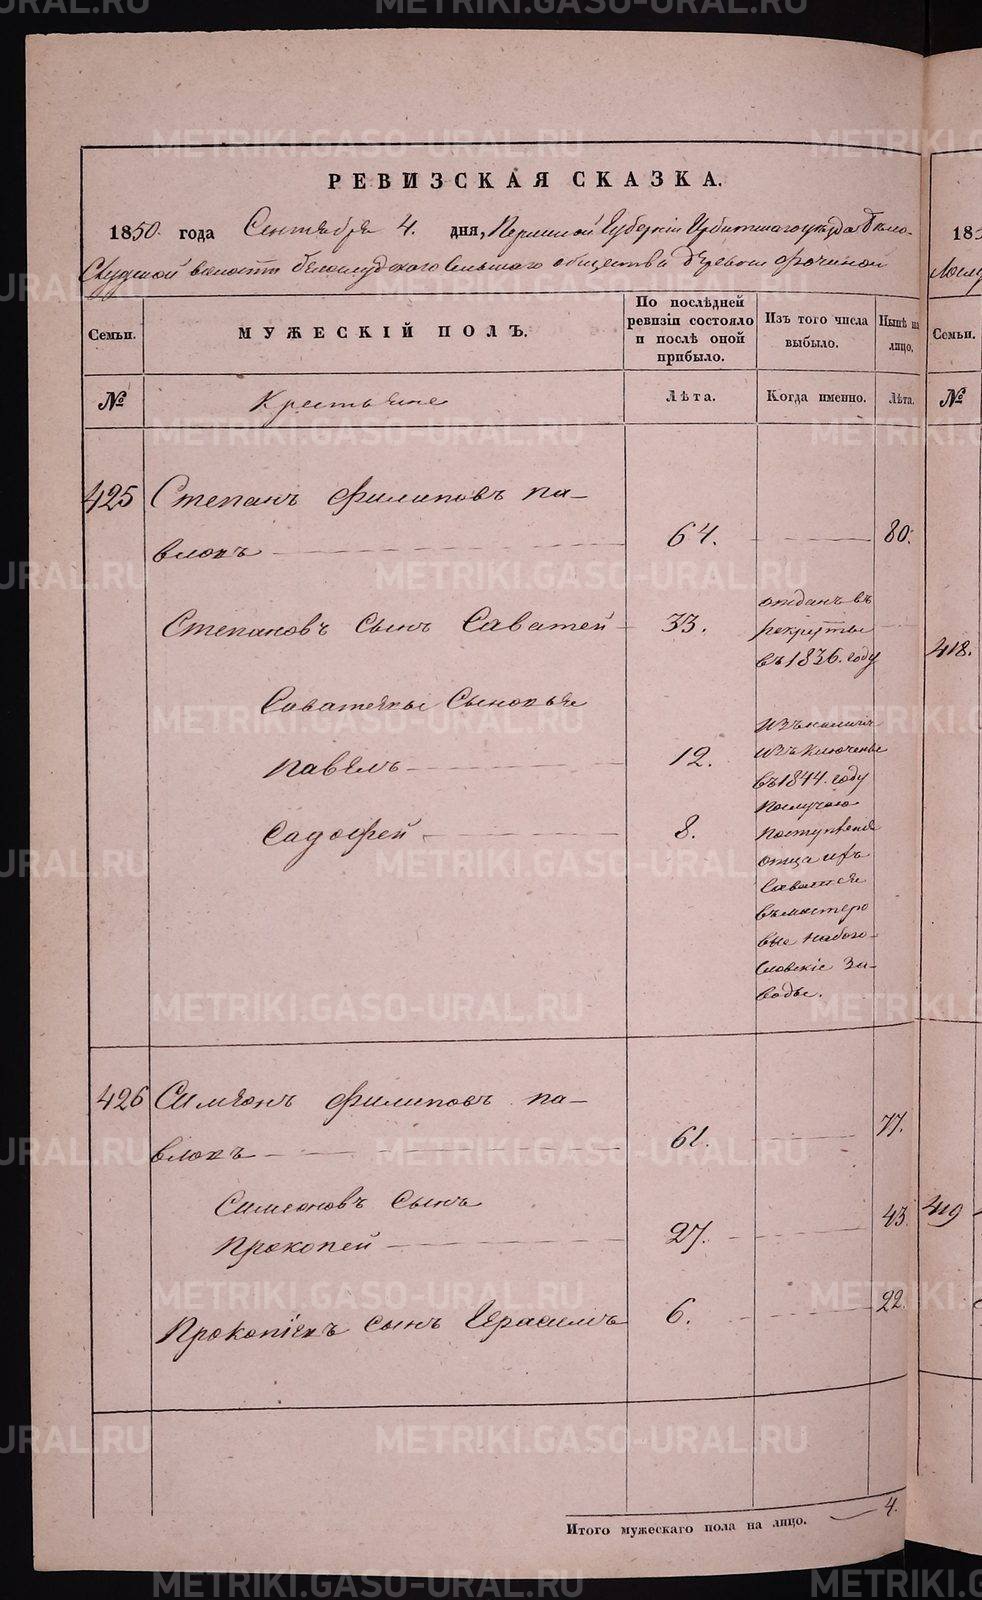 РЕВИЗСКАЯ СКАЗКА.
1850. года Сентября 4. дня, Пермской Губернiи Ирбитскаго уѣзда Бѣло-
Слудской волости белослудскаго сельскаго общества деревни Фочиной
Семьи.
МУЖЕСКІЙ ПОЛЪ.
По послѣдней ревизіи состояло и послѣ оной прибыло.
Изъ того числа выбыло.
Нынѣ на лицо.
№
Крестьяне
Лѣта.
Когда именно.
Лѣта.
425
Степанъ Филиповъ па-
вловъ
64.
80.
Степановъ Сынъ Саватей
33.
отданъ въ
рекруты
въ 1836. году
Саватеевы Сыновья
Павелъ
12.
Садофей
8.
изъ
изъключены
въ 1844. году
послучаю
поступленiя
отца ихъ
Саватея
въмастеро
вые набого-
словскiе за-
воды.
426
Симеонъ Филиповъ па-
вловъ
61.
77.
Симеоновъ Сынъ
Прокопей
27.
43.
Прокопiевъ сынъ Герасимъ
6.
22.
Итого мужескаго пола на лицо.
4.
185
Семьи.
№
418.
419
METRIKI.GASO-URAL.RU